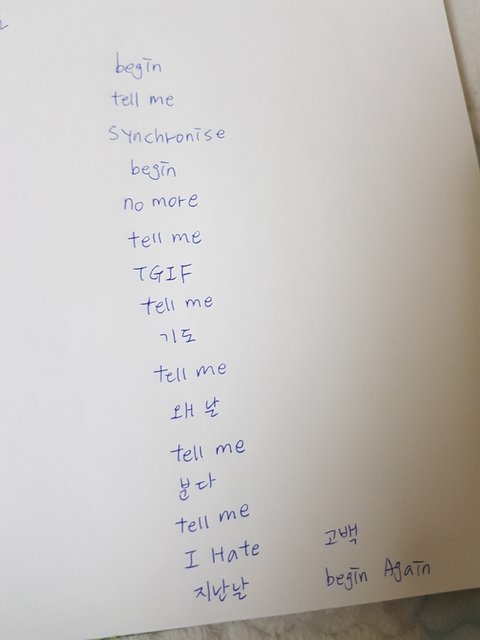 begin
tell me
Synchronise
begin
no more
tell me
TGIF
tell me
기도
tell me
왜 날
tell me
분다
tell me
I Hate
지난날
고백
begin Again